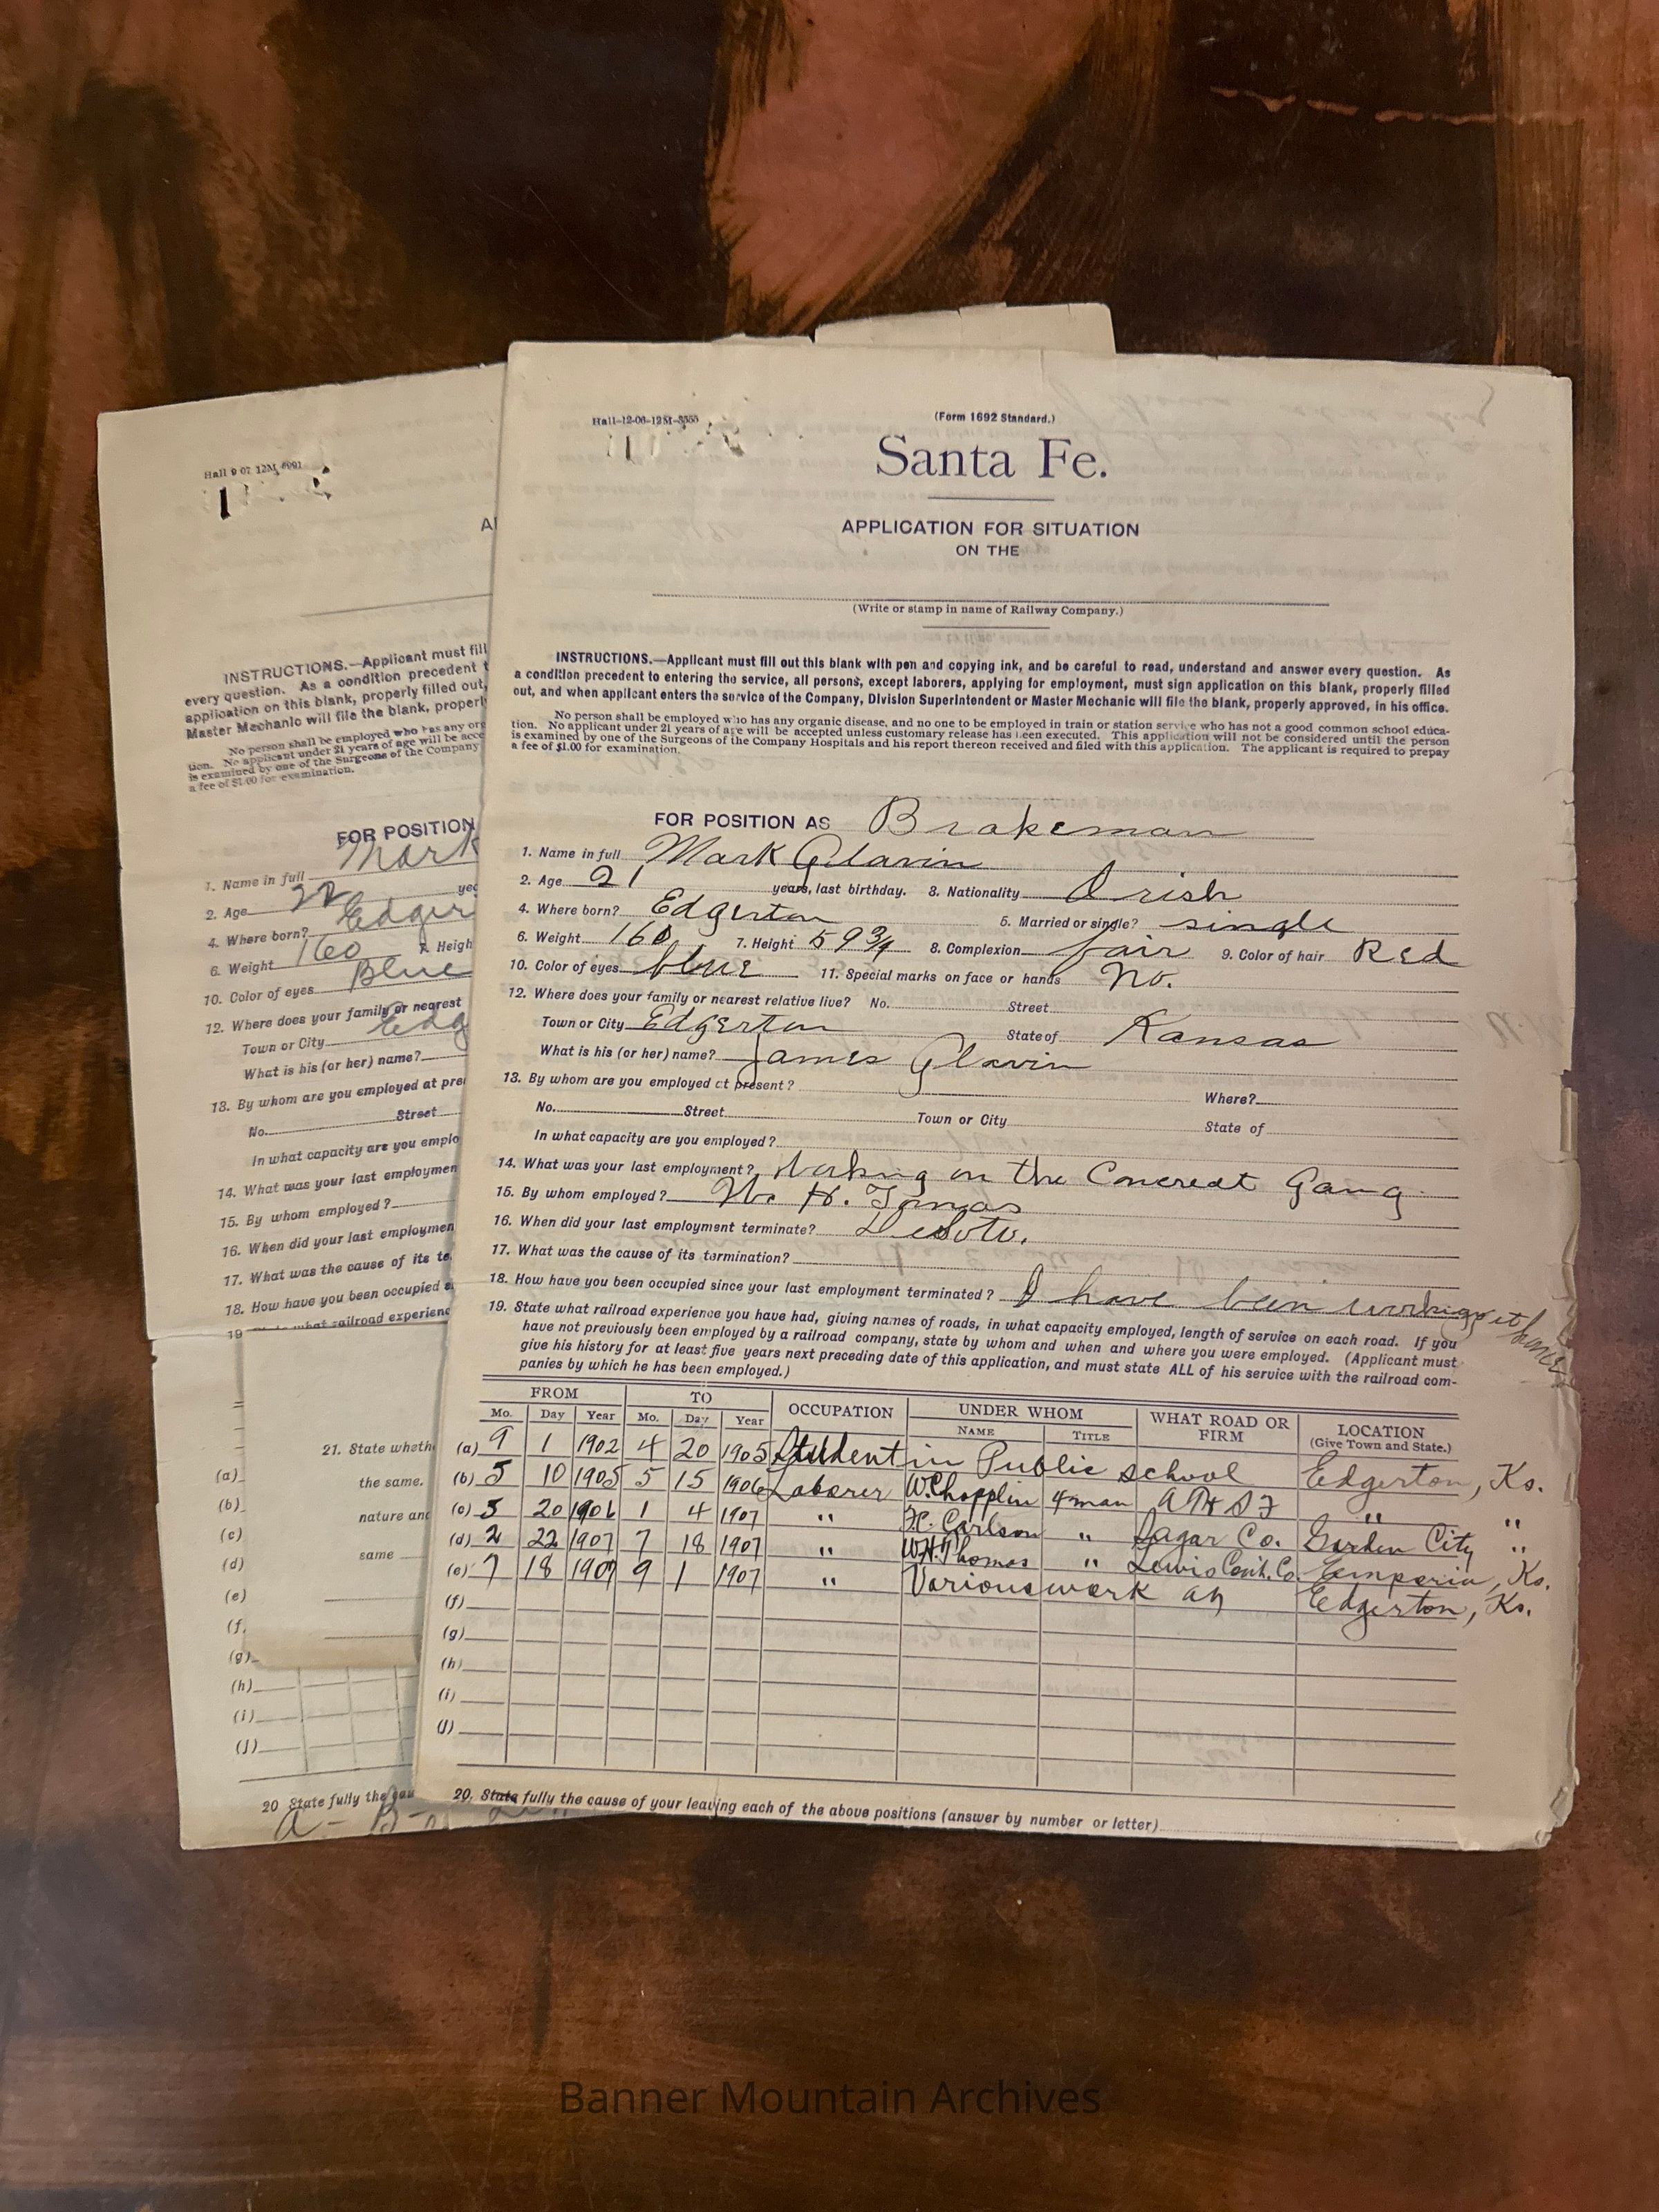 Hall-12-06-12M-3555
(Form 1692 Standard.)
Santa Fe.
APPLICATION FOR SITUATION
ON THE
(Write or stamp in name of Railway Company.)
INSTRUCTIONS.—Applicant must fill out this blank with pen and copying ink, and be careful to read, understand and answer every question. As
a condition precedent to entering the service, all persons, except laborers, applying for employment, must sign application on this blank, properly filled
out, and when applicant enters the service of the Company, Division Superintendent or Master Mechanic will file the blank, properly approved, in his office.
No person shall be employed who has any organic disease, and no one to be employed in train or station service who has not a good common school educa-
tion. No applicant under 21 years of age will be accepted unless customary release has been executed. This application will not be considered until the person
is examined by one of the Surgeons of the Company Hospitals and his report thereon received and filed with this application. The applicant is required to prepay
a fee of $1.00 for examination.
FOR POSITION AS Brakeman
1. Name in full Mark Glavin
2. Age 21 years, last birthday. 3. Nationality Irish
4. Where born? Edgerton 5. Married or single? single
6. Weight 160 7. Height 5 9 3/4 8. Complexion fair 9. Color of hair Red
10. Color of eyes blue 11. Special marks on face or hands No.
12. Where does your family or nearest relative live? No. Street
Town or City Edgerton State of Kansas
What is his (or her) name? James Glavin
13. By whom are you employed at present? Where?
No. Street Town or City State of
In what capacity are you employed?
14. What was your last employment? Working on the Concreat Gang
15. By whom employed? W. H. Tomas
16. When did your last employment terminate? DeSoto.
17. What was the cause of its termination?
18. How have you been occupied since your last employment terminated? I have been working at home
19. State what railroad experience you have had, giving names of roads, in what capacity employed, length of service on each road. If you
have not previously been employed by a railroad company, state by whom and when and where you were employed. (Applicant must
give his history for at least five years next preceding date of this application, and must state ALL of his service with the railroad com-
panies by which he has been employed.)
FROM TO OCCUPATION UNDER WHOM WHAT ROAD OR FIRM LOCATION
Mo. Day Year Mo. Day Year NAME TITLE (Give Town and State.)
(a) 9 1 1902 4 20 1905 Student in Public school Edgerton, Ks.
(b) 5 10 1905 5 15 1906 Laborer W. Chopplin 4man A T & S F " "
(c) 5 20 1906 1 4 1907 " F.C. Carlson " Sugar Co. Garden City "
(d) 2 22 1907 7 18 1907 " W.H. Thomas " Lewis Cont. Co. Emporia, Ks.
(e) 7 18 1907 9 1 1907 " Various work at Edgerton, Ks.
(f)
(g)
(h)
(i)
(j)
20. State fully the cause of your leaving each of the above positions (answer by number or letter)
Hall 9 07 12M 6991
INSTRUCTIONS.—Applicant must fill
every question. As a condition precedent t
application on this blank, properly filled out,
Master Mechanic will file the blank, properl
No person shall be employed who has any org
tion. No applicant under 21 years of age will be acce
is examined by one of the Surgeons of the Company
a fee of $1.00 for examination.
FOR POSITION
1. Name in full Mark
2. Age 22 yea
4. Where born? Edger
6. Weight 160 7. Heigh
10. Color of eyes Blue
12. Where does your family or nearest
Town or City Edg
What is his (or her) name?
13. By whom are you employed at pre
No. Street
In what capacity are you emplo
14. What was your last employmen
15. By whom employed?
16. When did your last employmen
17. What was the cause of its te
18. How have you been occupied s
19 State what railroad experienc
21. State wheth
the same.
nature and
same
(a)
(b)
(c)
(d)
(e)
(f.
(g)
(h)
(i)
(j)
20 State fully the cau
a - B-
Banner Mountain Archives